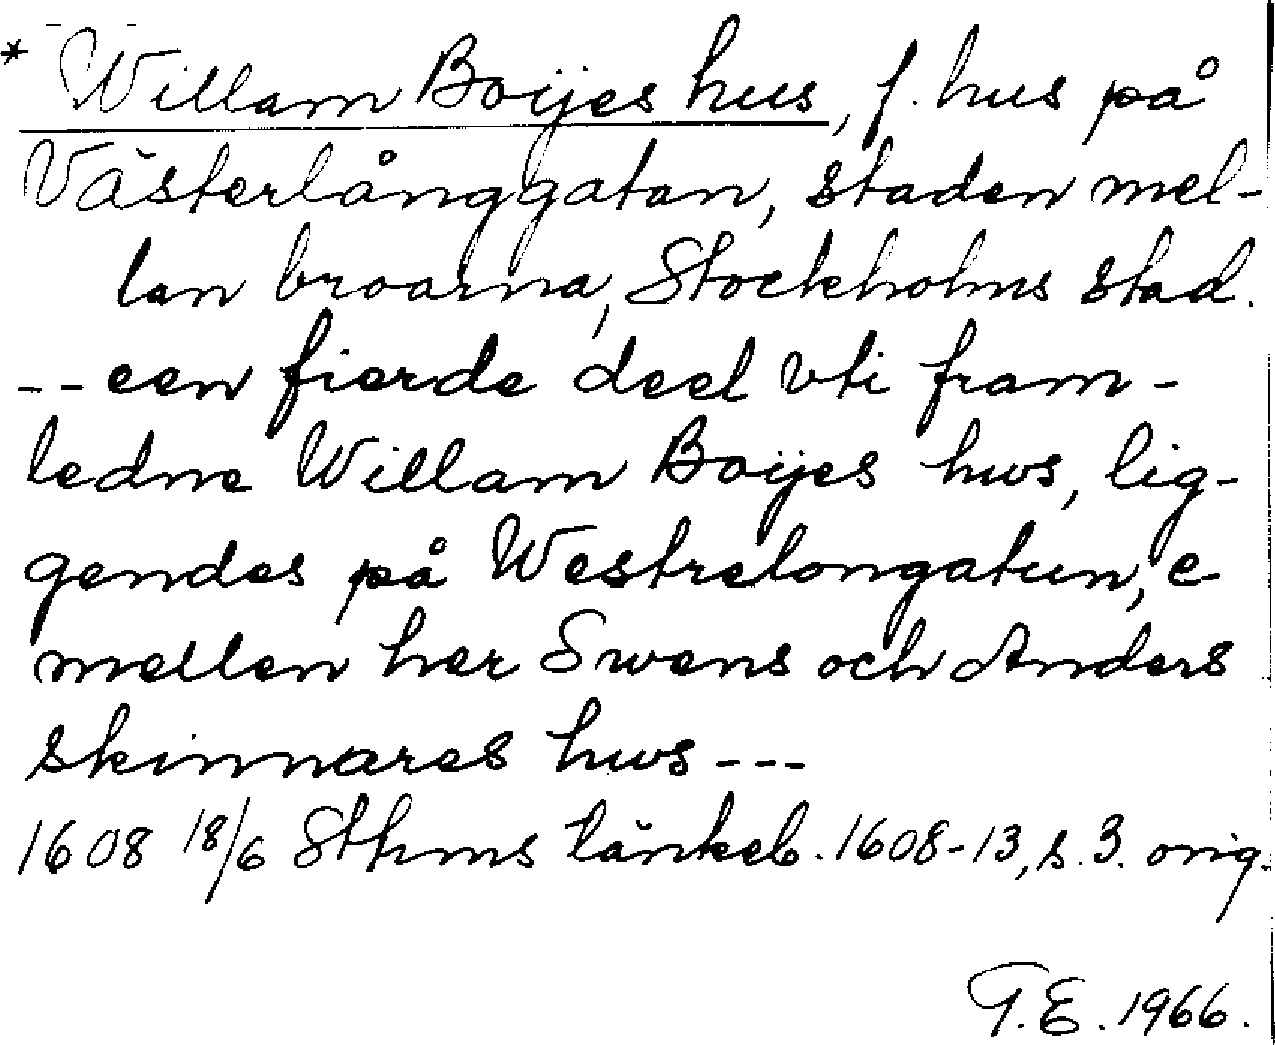 * Willam Boijes hus, f. hus på
Västerlånggatan, staden mel-
lan broarna, Stockholms stad.
-- een fierde deel vti fram-
ledne Willam Boijes hws, lig-
gendes på Westrelongatun, e-
mellen her Swens och Anders
skinnares hws ---
1608 18/6 Sthms tänkeb. 1608-13, s. 3. orig.
T.E. 1966.